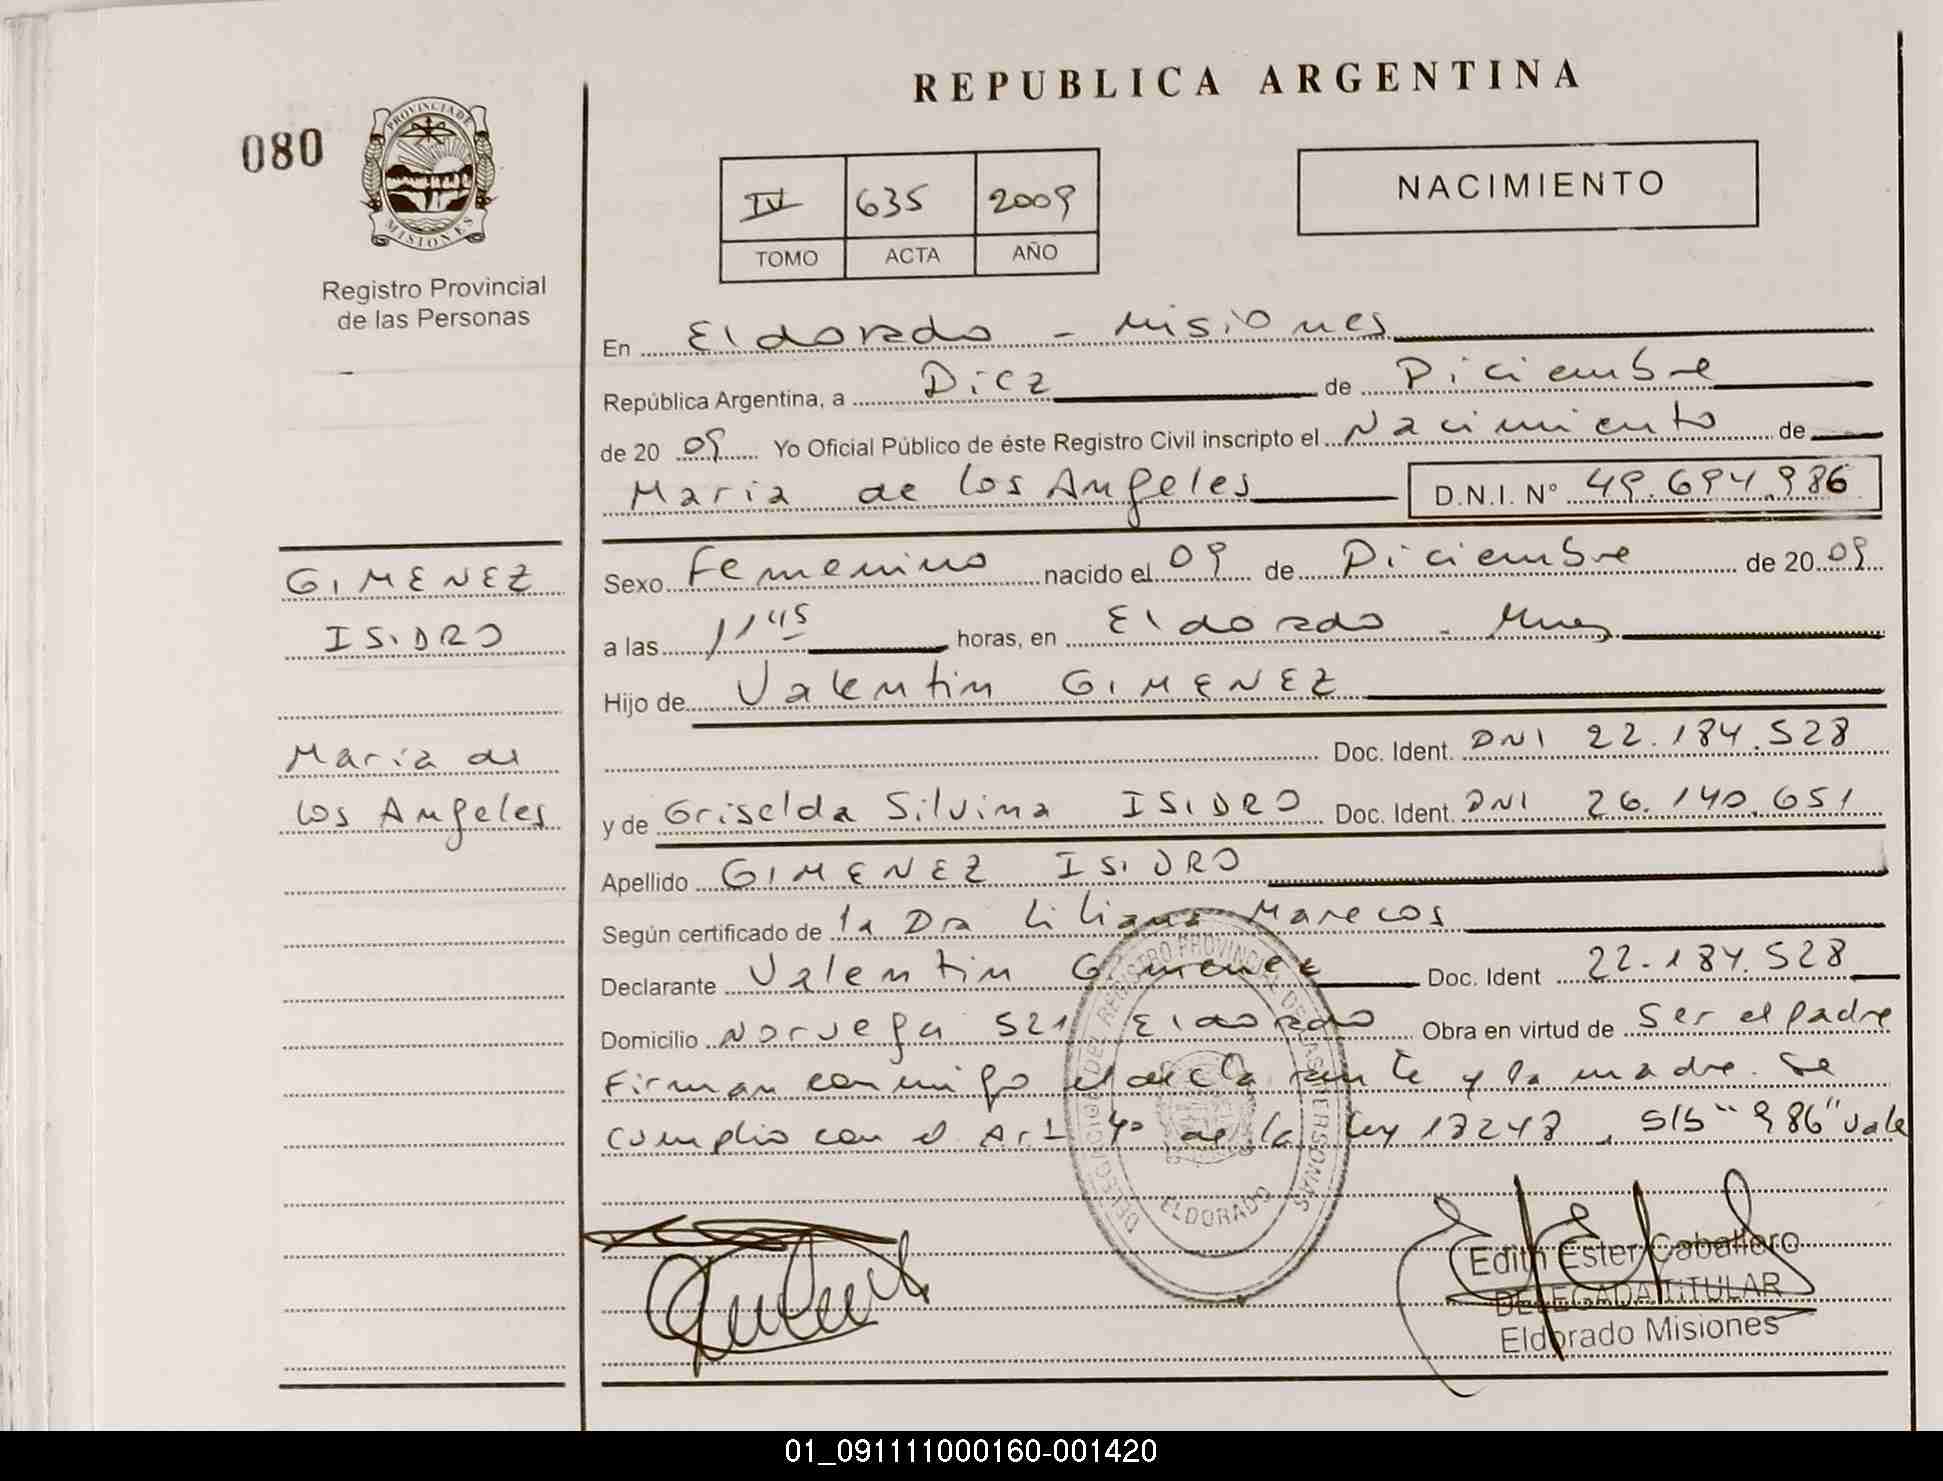 REPUBLICA ARGENTINA
080
PROVINCIA DE MISIONES
Registro Provincial
de las Personas
IV 635 2009
TOMO ACTA AÑO
NACIMIENTO
En Eldorado - Misiones
República Argentina, a Diez de Diciembre
de 20 09 Yo Oficial Público de éste Registro Civil inscripto el Nacimiento de
Maria de los Angeles D.N.I. Nº 49.694.986
GIMENEZ
ISIDRO
Maria de
los Angeles
Sexo Femenino nacido el 09 de Diciembre de 20 09
a las 11 45 horas, en Eldorado - Mnes
Hijo de Valentin GIMENEZ
Doc. Ident. DNI 22.184.528
y de Griselda Silvina ISIDRO Doc. Ident. DNI 26.140.651
Apellido GIMENEZ ISIDRO
Según certificado de la Dra Liliana Marecos
Declarante Valentin Gimenez Doc. Ident 22.184.528
Domicilio Noruega 521 Eldorado Obra en virtud de Ser el padre
Firman conmigo el declarante y la madre. Se
cumplio con el Art 4º de la Ley 18248, S/S "986" vale
DELEGACION DEL REGISTRO PROVINCIAL DE LAS PERSONAS
ELDORADO
Edith Ester Caballero
DELEGADA TITULAR
Eldorado Misiones
01_091111000160-001420